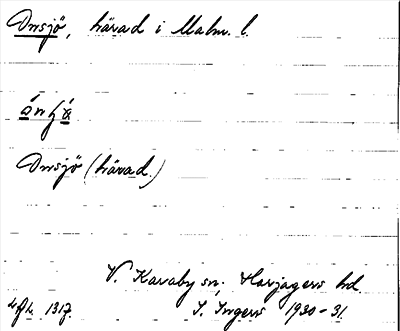 Onsjö, härad i Malm. l.
Onsjö (härad.)
V. Karaby sn. Harjagers hd.
1317. I. Ingers 1930-31.